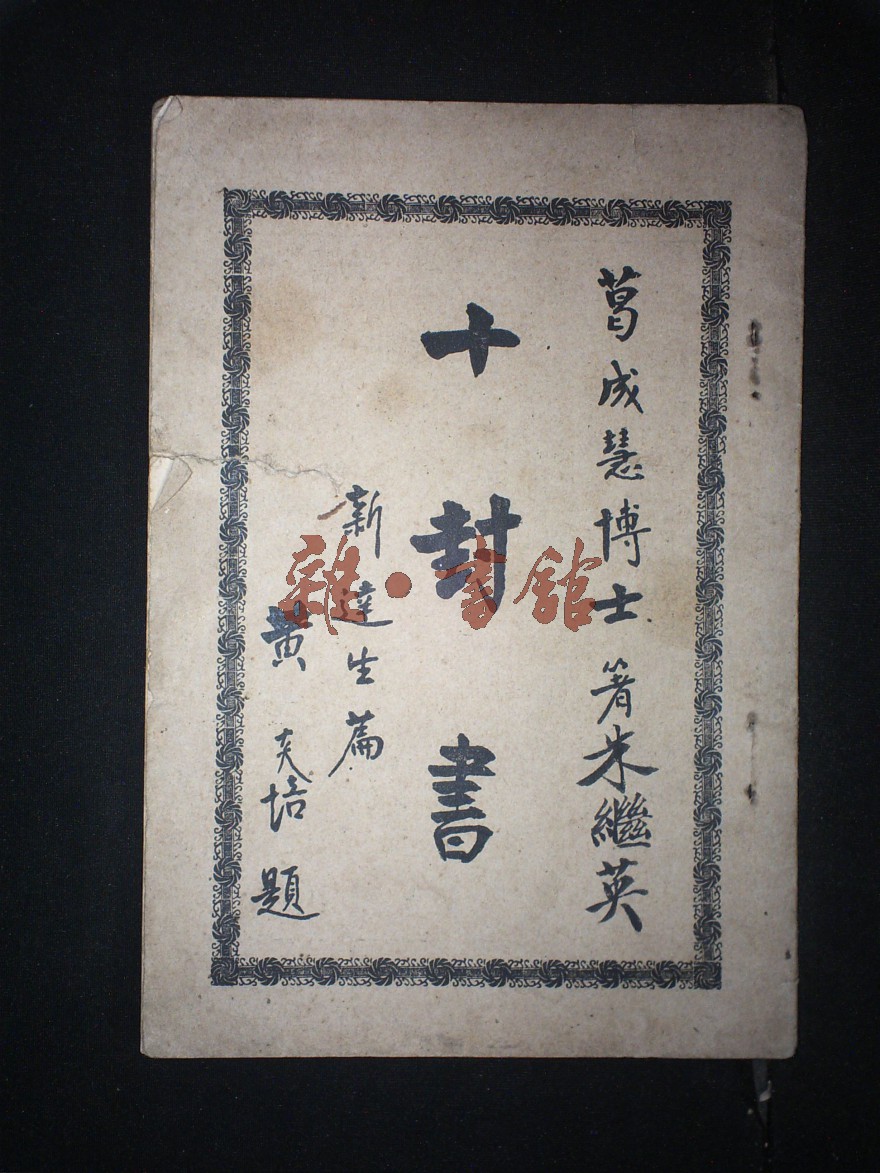 葛成慧博士著朱繼英
十封書
新達生篇
黃炎培題
雜·書館